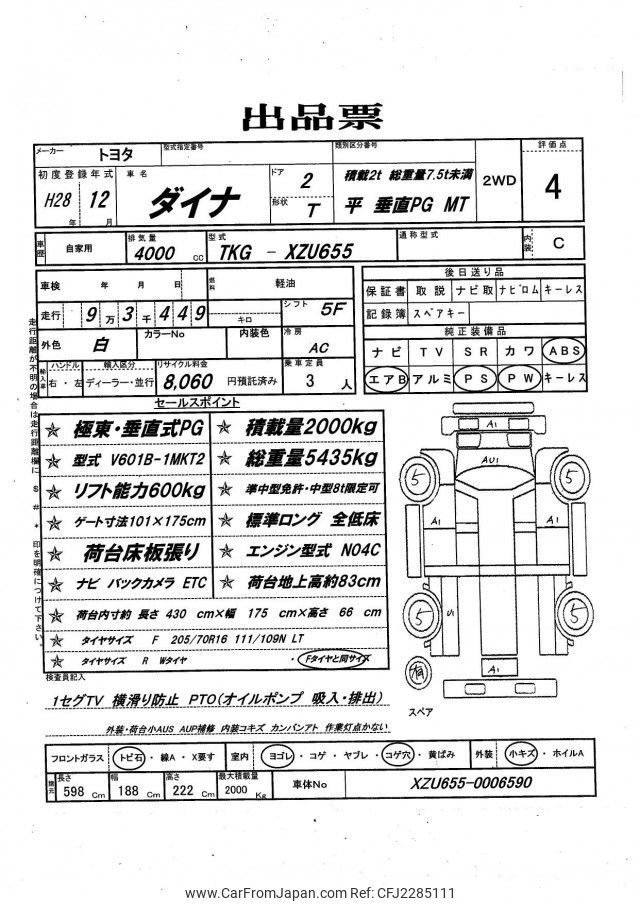 出品票
メーカー トヨタ 型式指定番号 類別区分番号 評価点
初度登録年式 車名 ドア 2 積載2t 総重量7.5t未満 2WD 4
H28 年 12 月 ダイナ 形状 T 平 垂直PG MT
車歴 自家用 排気量 4000 cc 型式 TKG - XZU655 通称型式 内装 C
車検 年 月 日 燃料 軽油 後日送り品
走行 9万3千449 キロ シフト 5F 保証書 取説 ナビ取 ナビロム キーレス
記録簿 スペアキー
外色 白 カラーNo 内装色 冷房 AC 純正装備品
ナビ TV SR カワ ABS
輸入車 ハンドル 右・左 輸入区分 ディーラー・並行 リサイクル料金 8,060 円預託済み 乗車定員 3 人 エアB アルミ PS PW キーレス
セールスポイント
☆ 極東・垂直式PG ☆ 積載量2000kg
☆ 型式 V601B-1MKT2 ☆ 総重量5435kg
☆ リフト能力600kg ☆ 準中型免許・中型8t限定可
☆ ゲート寸法101×175cm ☆ 標準ロング 全低床
☆ 荷台床板張り ☆ エンジン型式 N04C
☆ ナビ バックカメラ ETC ☆ 荷台地上高約83cm
☆ 荷台内寸約 長さ 430 cm×幅 175 cm×高さ 66 cm
☆ タイヤサイズ F 205/70R16 111/109N LT
☆ タイヤサイズ R Wタイヤ ・Fタイヤと同サイズ
走行距離が不明の場合は走行距離欄に $ # * 印を明確につけて下さい。
A1
AU1
5 5
A1 A1
5 U1 5
有 A1
スペア
検査員記入
1セグTV 横滑り防止 PTO(オイルポンプ 吸入・排出)
外装・荷台小AUS AUP補修 内装コキズ カンバンアト 作業灯点かない
フロントガラス トビ石・線A・X要す 室内 ヨゴレ・コゲ・ヤブレ・コゲ穴・黄ばみ 外装 小キズ・ホイルA
諸元 長さ 598 Cm 幅 188 Cm 高さ 222 Cm 最大積載量 2000 Kg 車体No XZU655-0006590
www.CarFromJapan.com Ref: CFJ2285111